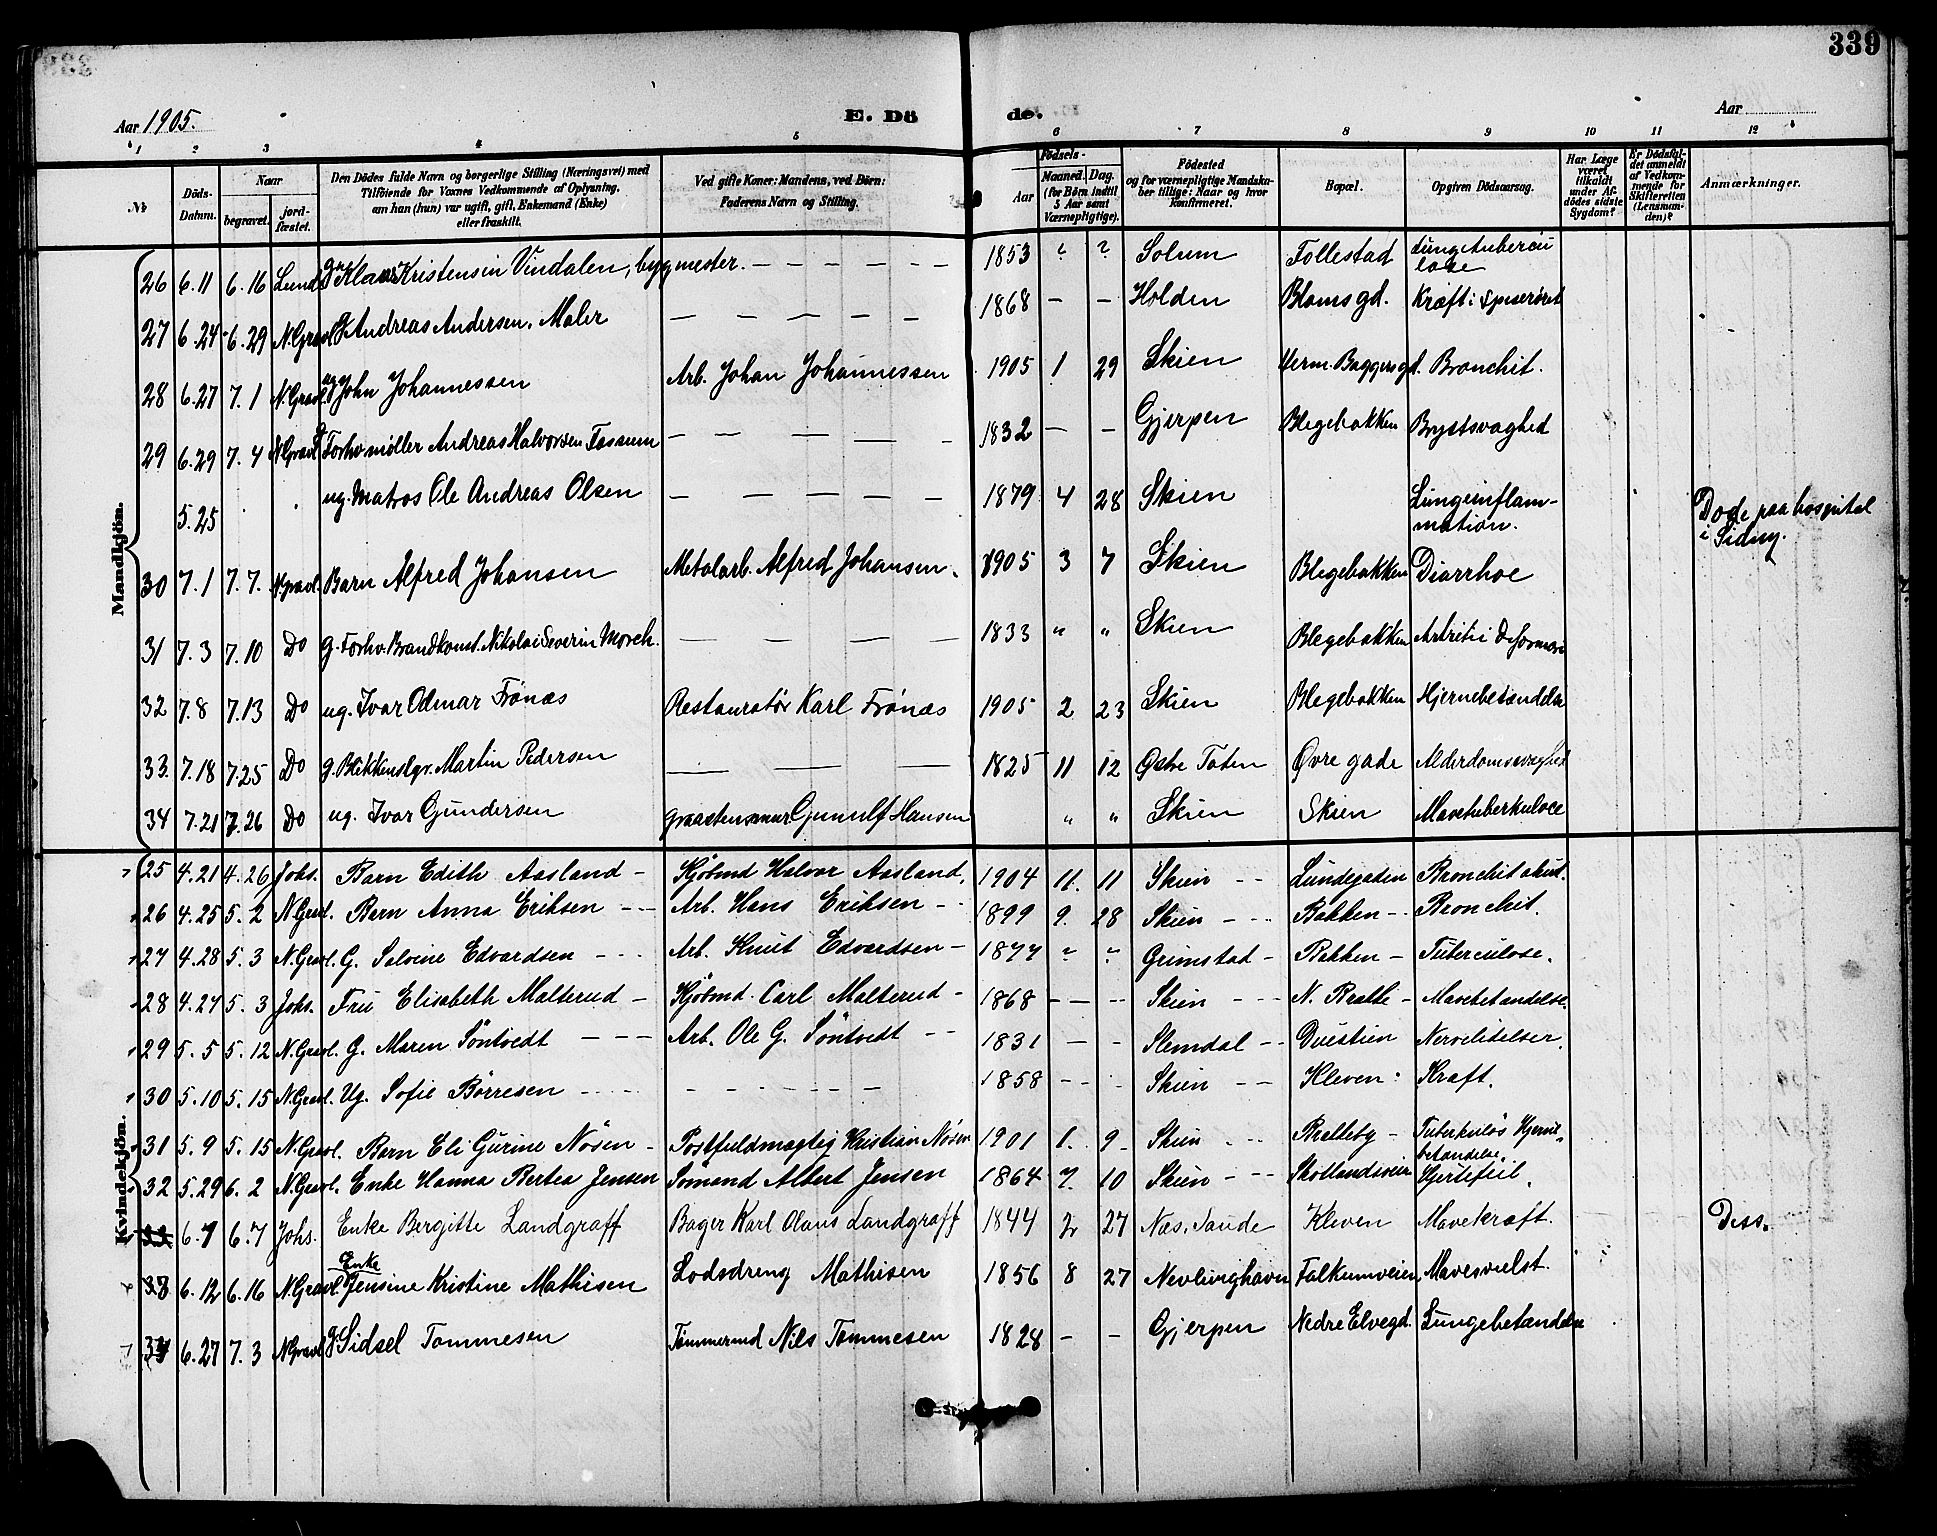 339
Aar 1905.
E. Dö de.
Aar
1 2 3 4 5 6 7 8 9 10 11 12
№ Döds-Datum. Naar begravet. jordfæstet. Den Dödes fulde Navn og borgerlige Stilling (Næringsvei) med Tilföiende for Voxnes Vedkommende af Oplysning, om han (hun) var ugift, gift, Enkemand (Enke) eller fraskilt. Ved gifte Koner: Mandens, ved Börn: Faderens Navn og Stilling. Födsels- Aar Maaned. Dag. (for Börn indtil 5 Aar samt Værnepligtige). Födested og for værnepligtige Mandskaber tillige: Naar og hvor konfirmeret. Bopæl. Opgiven Dödsaarsag. Har Læge været tilkaldt under Afdödes sidste Sygdom? Er Dödsfaldet anmeldt af Vedkommende for Skifteretten (Lensmanden)? Anmærkninger.
Mandkjön.
26 6.11 6.16 Lund Klaus Kristensen Vindalen, bygmester. — — — — — — 1853 ? ? Solum Follestad Lungetuberculose
27 6.24 6.29 N.Gravl. g Andreas Andersen, Maler — — — — — 1868 — — Holden Blomsgd. Kræft i Spiserøret
28 6.27 7.1 N.Gravl. ug John Johannessen Arb. Johan Johannessen 1905 1 29 Skien Herm. Baggersgd. Bronchit.
29 6.29 7.4 N.Gravl. Forhv møller Andreas Halvorsen Fossum — — — — — 1832 — — Gjerpen Blegebakken Brystsvaghed
5.25 ug. Matros Ole Andreas Olsen — — — — — 1879 4 28 Skien Lungeinflammation. Døde paa hospital i Sidney.
30 7.1 7.7. N.Gravl. Barn Alfred Johansen Metalarb. Alfred Johansen. 1905 3 7 Skien Blegebakken Diarrhoe
31 7.3 7.10 Do g. Forhv. Brandkonst. Nikolai Severin Morch. — — — — 1833 " " Skien Blegebakken Artritis Deformans
32 7.8 7.13 Do ug. Ivar Odmar Frønæs Restauratør Karl Frønæs 1905 2 23 Skien Blegebakken Hjernebetændelse
33. 7.18 7.25 Do g. Blikkenslgr. Martin Pedersen — — — 1825 11 12 Østre Toten Øvre gade Alderdomssvaghed
34 7.21 7.26 Do ug. Ivar Gundersen graastensmur Gunulf Hansen " " Skien Skien Mavetuberkulose
Kvindekjön.
25 4.21 4.26 Johs. Barn Edith Aasland — Kjøbmd Halvor Aasland, 1904 11. 11 Skien - - Lundegaden Bronchit akut.
26 4.25 5.2 N.Gravl. Barn Anna Eriksen - - - Arb. Hans Eriksen - - 1899 9. 28 Skien - - - Bakken - - Bronchit.
27 4.28 5.3 N.Gravl. G. Salvine Edvardsen - - - Arb. Knut Edvardsen - 1877 ? ? Grimstad - Bakken - Tuberculose.
28 4.27 5.3 Johs. Fru Elisabeth Malterud - Kjøbmd. Carl Malterud - 1868 - - - - Skien - - - N. Bratte - Mavebetændelse.
29 5.5 5.12 N.Gravl. G. Maren Söntvedt - - - Arb. Ole G. Söntvedt - - 1831 - - Slemdal - - Duestien Nervelidelser.
30 5.10 5.15 N.Gravl. Ug. Sofie Börresen - - - - - - - - - - 1858 - - - Skien - - Kleven : Kræft.
31 5.9 5.15 N.Gravl. Barn Eli Gurine Nösen - Postfuldmægtig Kristian Nösen 1901 1. 9 - Skien - - - Bratteby - Tuberkuløs Hjernebetændelse.
32 5.29 6.2 N.Gravl. Enke Hanna Bertea Jensen Sømand Albert Jensen 1864 7. 10 Skien - - - Skotlandsveien Hjertefeil.
33 6.1 6.7 Johs. Enke Bergitte Landgraff Bager Karl Olaus Landgraff 1844 2 27 Næs, Saude Kleven Mavekræft. Diss.
33 6.12 6.16 N.Gravl. Enke Jensine Kristine Mathisen Lodsdreng Mathisen 1856 8 27 Nevlunghavn Falkumveien, Mavesvulst.
34 6.27 7.3 N.Gravl. g. Sidsel Tommesen Tømmermd Nils Tommesen 1828 - - Gjerpen Nedre Elvegd. Lungebetændelse